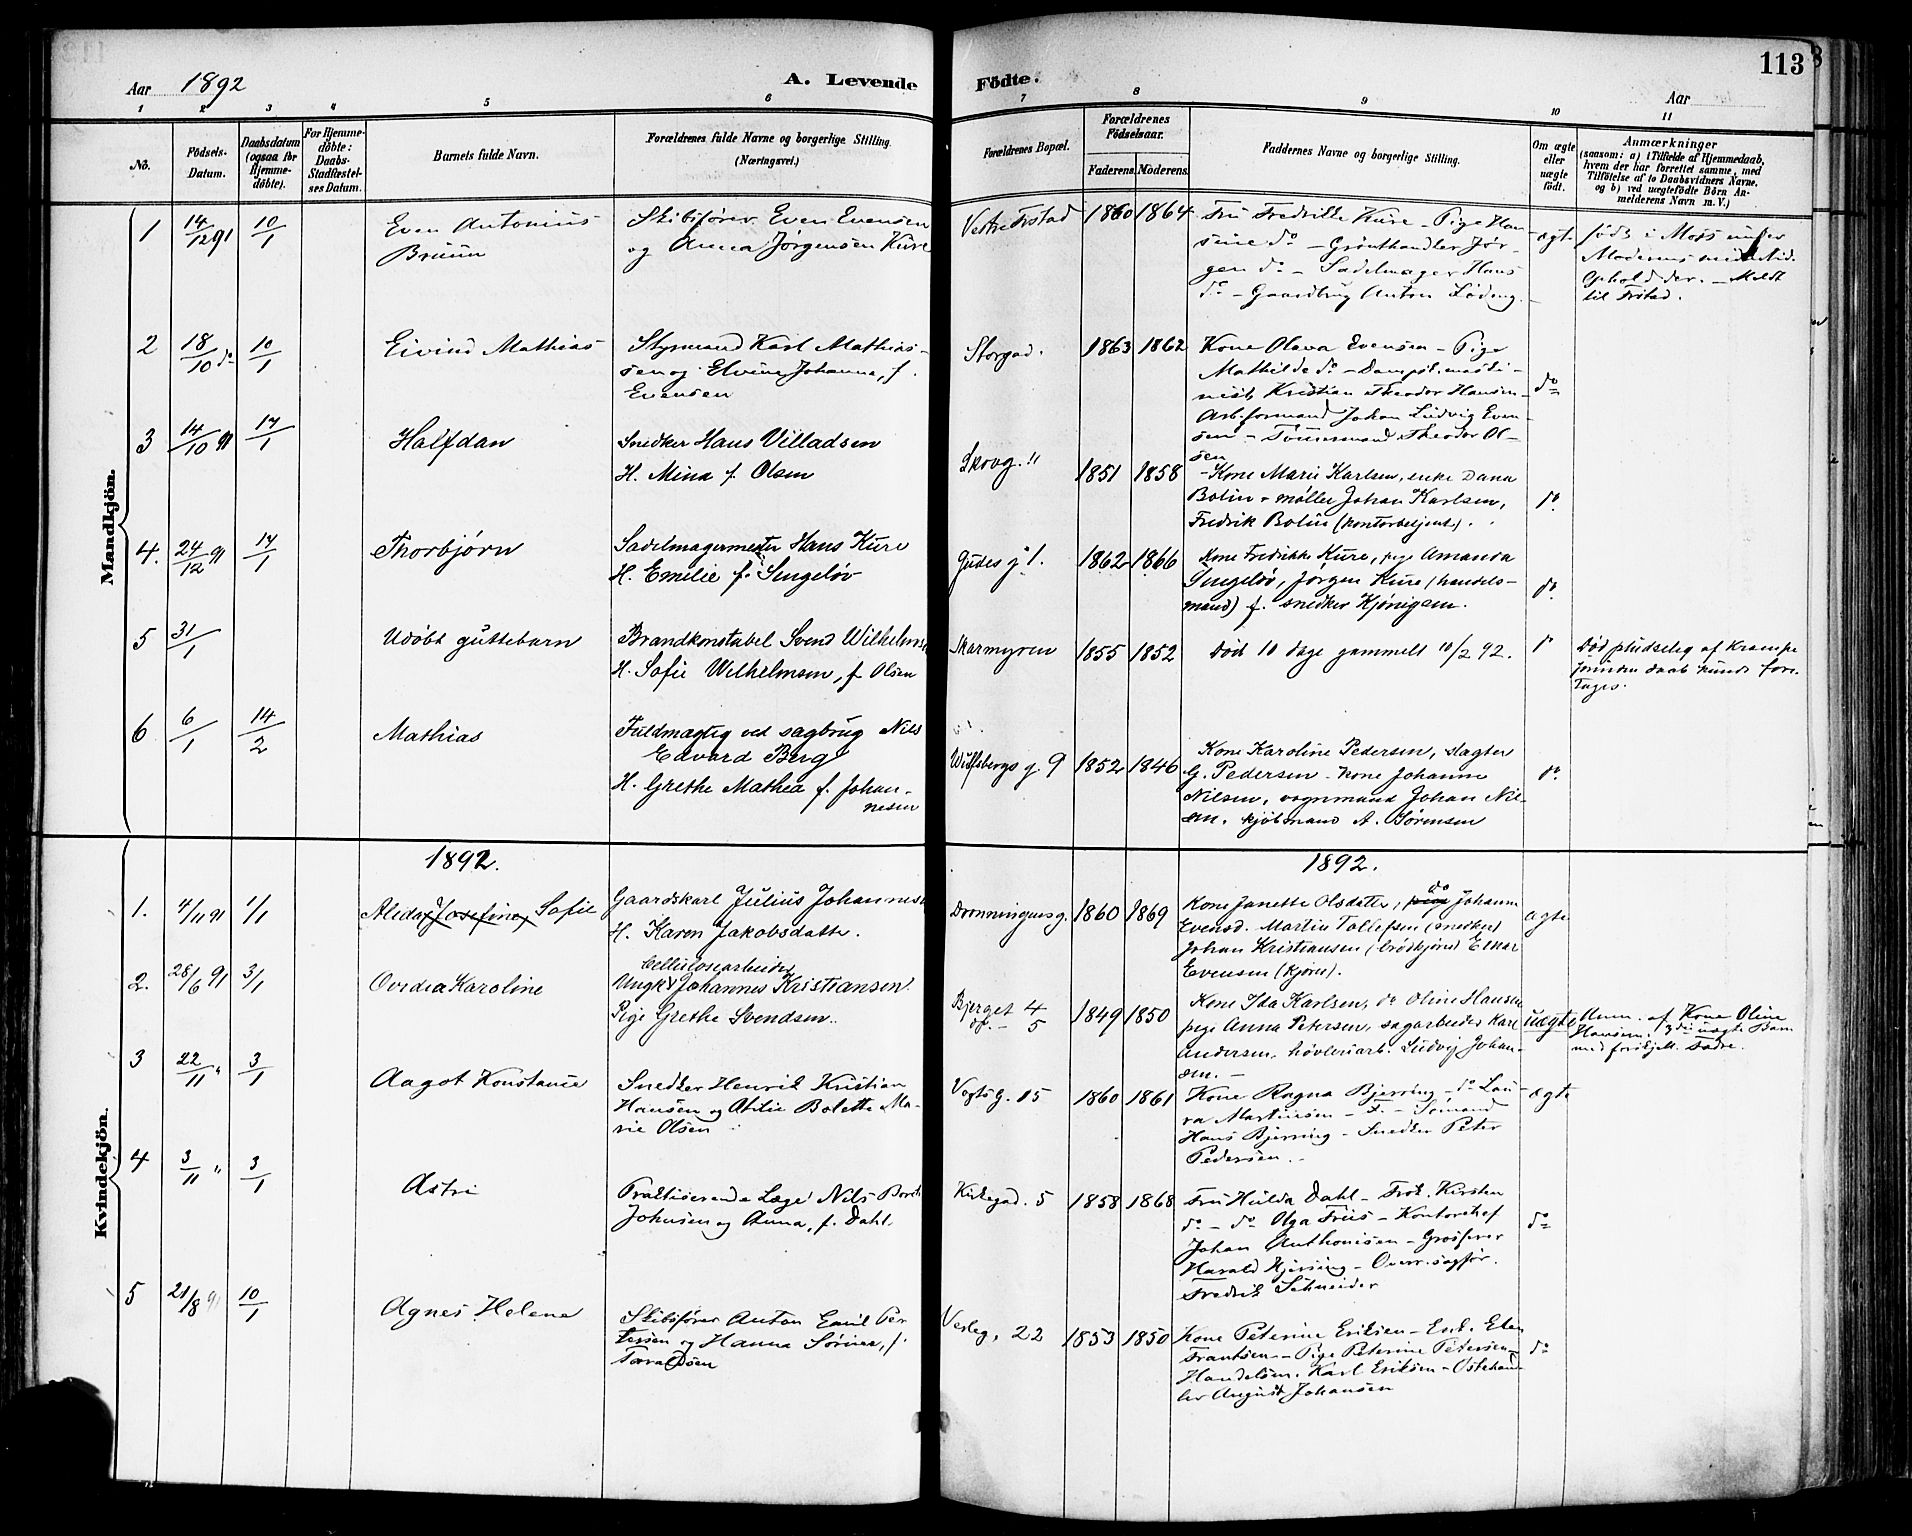 113
Aar 1892
A. Levende Födte.
Aar
1 2 3 4 5 6 7 8 9 10 11
No.
Födsels-
Datum.
Daabsdatum
(ogsaa for
Hjemme-
döbte).
For Hjemme-
döbte:
Daabs-
Stadfæstel-
ses Datum.
Barnets fulde Navn.
Forældrenes fulde Navne og borgerlige Stilling.
(Næringsvei.)
Forældrenes Bopæl.
Forældrenes
Födselsaar.
Faderens. Moderens.
Faddernes Navne og borgerlige Stilling.
Om ægte
eller
uægte
födt.
Anmærkninger
(saasom: a) i Tilfælde af Hjemmedaab,
hvem der har forrettet samme, med
Tilföielse af to Daabsvidners Navne,
og b) ved uægtefödte Börn An-
melderens Navn m. V.)
Mandkjön.
1 14/12 91 10/1
Even Antonius
Bruun
Skibsfører Even Evensen
og Anna Jørgensen Kure
Vestre Frstad
1860 1864
Fru Fredrikke Kure – Pige Han-
sine do – Grønthandler Jør-
gen do – Sadelmager Hans
do – Gaardbrug Anton Lødeng.
ægte
født i Moss under
Moderens midlertid.
Ophold der. – Meldt
til Frstad.
2 18/10 do 10/1
Eivind Mathias
Styrmand Karl Mathias-
sen og Elvine Johanna, f.
Evensen
Storgad.
1863 1862
Kone Olava Evensen – Pige
Mathilde do – Dampsk.maski-
nist Kristian Theodor Hansen –
Arb.formand Johan Ludvig Even-
sen – Tømmermand Theodor Ol-
sen
do
3 14/10 91 17/1
Halfdan
Snedker Hans Villadsen
H. Mina f. Olsen
Skovg. 11
1851 1858
– Kone Marie Karlsen, enke Dana
Bolin – møller Johan Karlsen,
Fredrik Bolin (kontorbetjent).
do.
4. 24/12 91 17/1
Thorbjørn
Sadelmagermester Hans Kure
H. Emilie f. Singeløv
Gudes g. 1.
1862 1866
Kone Fredrikke Kure, pige Amanda
Singeløv, Jørgen Kure (handels-
mand) f. snedker Kjønigsen.
do.
5 31/1
Udøbt guttebarn
Brandkonstabel Svend Wilhelmsen
H. Sofie Wilhelmsen, f. Olsen
Skarmyren
1855 1852
Død 10 dage gammelt 10/2 92.
do
Død pludselig af Krampe
førinden daab kunde fore-
tages.
6 6/1 14/2
Mathias
Fuldmægtig ved sagbrug Nils
Edvard Berg
H. Grethe Mathea f. Johan-
nesen
Wulfsbergs g. 9
1852 1846
Kone Karoline Pedersen, slagter
G. Pedersen – kone Johanne
Nilsen, vognmand Johan Nil-
sen, kjøbmand A. Sørensen
do.
1892. 1892.
Kvindekjön.
1. 4/11 91 1/1
Alida Josefine Sofie
Gaardskarl Julius Johannesen
H. Karen Jakobsdatter.
Dronningensg.
1860 1869
Kone Janette Olsdatter, pige do Johanne
Evensd. Martin Tollefsen (snedker)
Johan Kristiansen (brødkjører) Einar
Evensen (kjører).
ægte
2. 28/6 91 3/1
Ovidia Karoline
Cellulosearbeider
Ungk. Johannes Kristiansen.
Pige Grethe Svendsen.
Bjerget 4
do. – 5
1849 1850
Kone Ida Karlsen, do Oline Hansen
pige Anna Petersen, sagarbeider Karl
Andersen, høvleriarb. Ludvig Johan-
sen. –
uægte
Anm. af Kone Oline
Hansen. 3die uægte Barn
med forskjell. Fædre.
3 22/11 " 3/1
Aagot Konstance
Snedker Henrik Kristian
Hansen og Otilie Bolette Ma-
rie Olsen
Vogts g. 15
1860 1861
Kone Ragna Bjerring – do Lau-
ra Martinsen – F. – Sømand
Hans Bjerring – Snedker Peter
Pedersen. –
ægte
4 3/11 " 3/1
Astri
Praktiserende Læge Nils
Johnsen og Anna, f. Dahl.
Kirkegad. 5
1858 1868
Fru Hulda Dahl – Frøk. Kirsten
do – do Olga Friis – Kontorchef
Johan Anthonisen – Grosserer
Harald Hjersing – Overr.sagfør.
Fredrik Schneider
do
5 21/8 91 10/1
Agnes Helene
Skibsfører Anton Emil Pet-
tersen og Hanna Sørine, f.
Taraldsen
Vesleg. 22
1853 1850
Kone Peterine Eriksen – Enk. Elen
Frantsen – Pige Peterine Petersen –
Handelsm. Karl Eriksen – Ostehand-
ler August Johansen
do